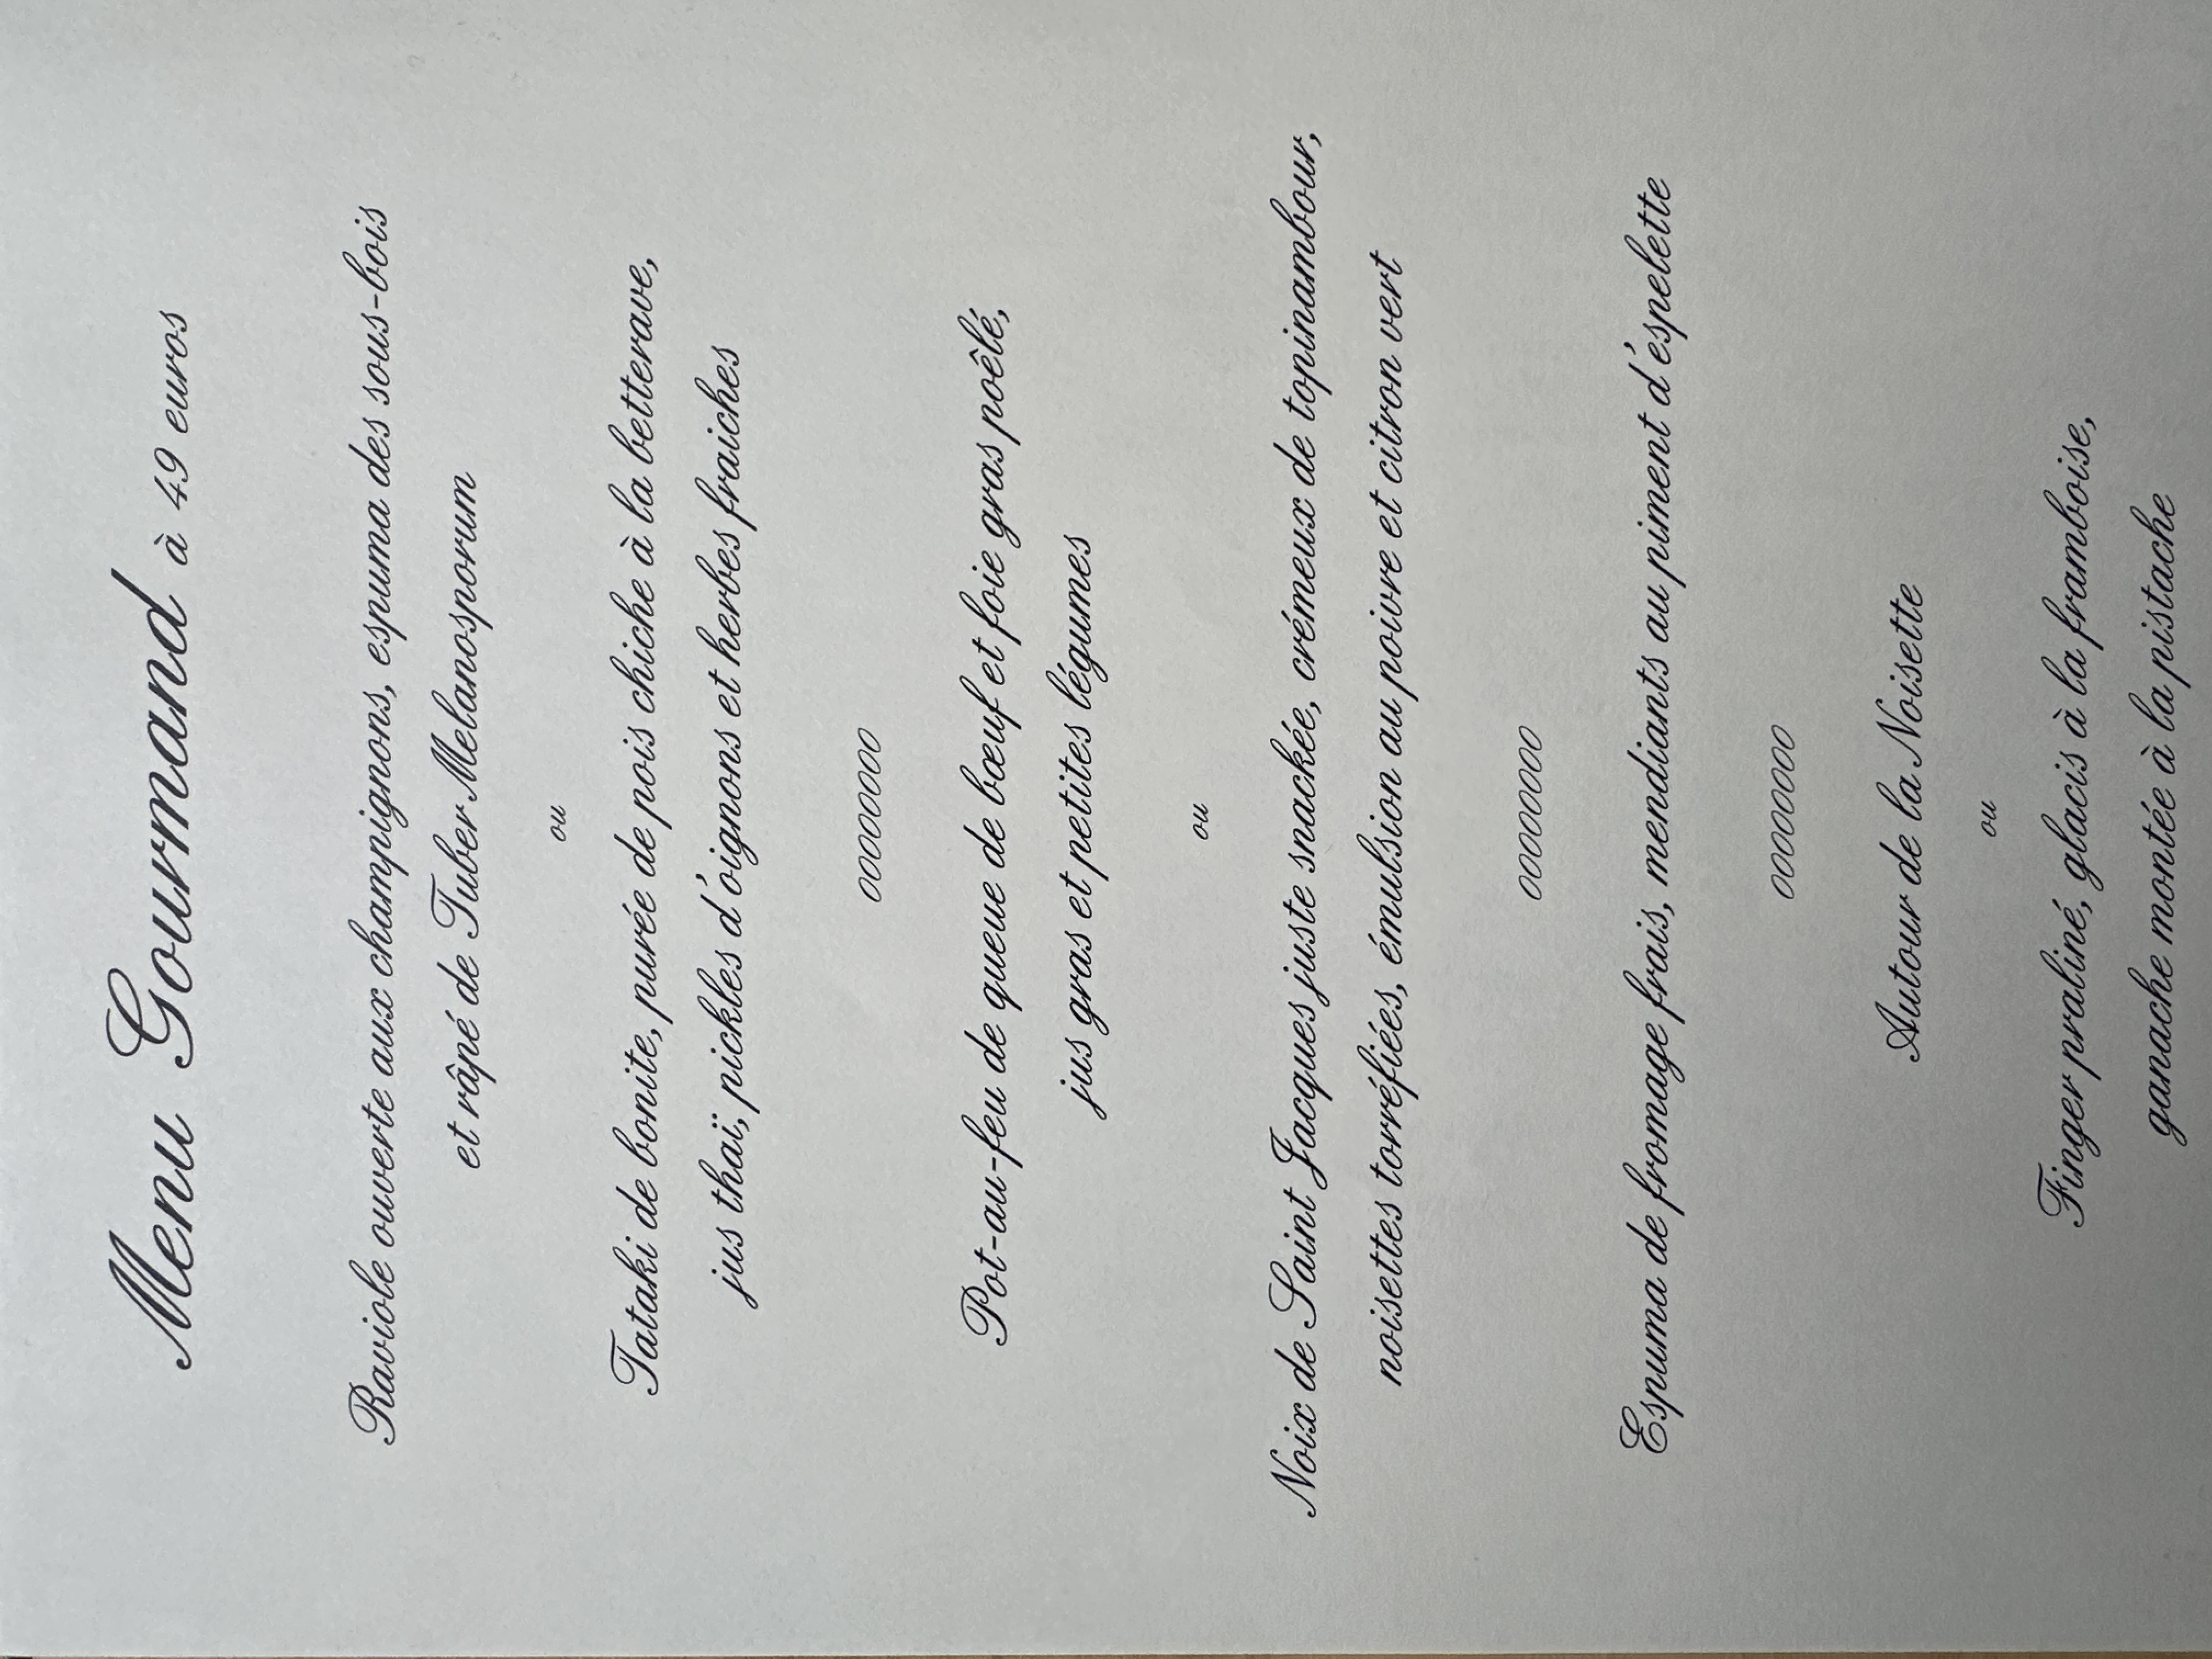 Menu Gourmand à 49 euros
Raviole ouverte aux champignons, espuma des sous-bois
et râpé de Tuber Melanosporum
ou
Tataki de bonite, purée de pois chiche à la betterave,
jus thaï, pickles d'oignons et herbes fraiches
oooooooo
Pot-au-feu de queue de bœuf et foie gras poêlé,
jus gras et petites légumes
ou
Noix de Saint Jacques juste snackée, crémeux de topinambour,
noisettes torréfiées, émulsion au poivre et citron vert
oooooooo
Espuma de fromage frais, mendiants au piment d'espelette
oooooooo
Autour de la Noisette
ou
Finger praliné, glacis à la framboise,
ganache montée à la pistache